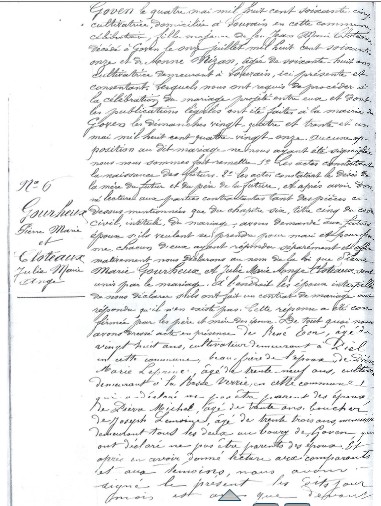 Goven le quatre mai mil huit cent soixante cinq
cultivatrice, domiciliée à Louvain en cette commune
célibataire, fille majeure de feu Jean Marie Cloteaux
décédé à Goven le onze juillet mil huit cent soixante
onze et de Jeanne Mezan, âgée de soixante huit ans
cultivatrice demeurant à Louvain, ici présente et
consentante, lesquels nous ont requis de procéder à
la célébration du mariage projeté entre eux et dont
les publications légales ont été faites à la mairie de
Goven les dimanches vingt quatre et trente et un
mai mil huit cent quatre vingt onze, aucune op
position au dit mariage ne nous ayant été signifiée
nous nous sommes fait remettre 1° les actes constatant
la naissance des futurs 2° les actes constatant le décès de
la mère du futur et du père de la future, et après avoir don
né lecture aux parties contractantes tant des pièces ci
dessus mentionnées que du chapitre six, titre cinq du code
civil, intitulé, du mariage, avons demandé aux futurs
époux s'ils veulent se prendre pour mari et pour fem
me chacun d'eux ayant répondu séparément et affir
mativement nous déclarons au nom de la loi que Pierre
Marie Gourheux, et Julie Marie Ange Cloteaux, sont
unis par le mariage. A l'endroit les époux interpellés
de nous déclarer s'ils ont fait un contrat de mariage ont
répondu qu'il n'en existe pas. Cette réponse a été con
firmée par les père et mère De tout quoi nous
avons dressé acte en présence de René âgé de
vingt huit ans, cultivateur demeurant à
en cette commune, beau-frère de l'époux, de
Marie Leprince, âgé de trente-neuf ans, cultivateur
demeurant à la en cette commune,
qui a déclaré ne pas être parent des époux
de Pierre Michel, âgé de trente ans,
de Joseph âgé de trente trois ans,
demeurant tous les deux au bourg de Goven qui
ont déclaré ne pas être parents des époux. Et
après en avoir donné lecture aux comparants
et aux témoins, nous avons
signé le présent les dits jour
mois et an que devant
N° 6
Gourheux
Pierre Marie
et
Cloteaux
Julie Marie
Ange